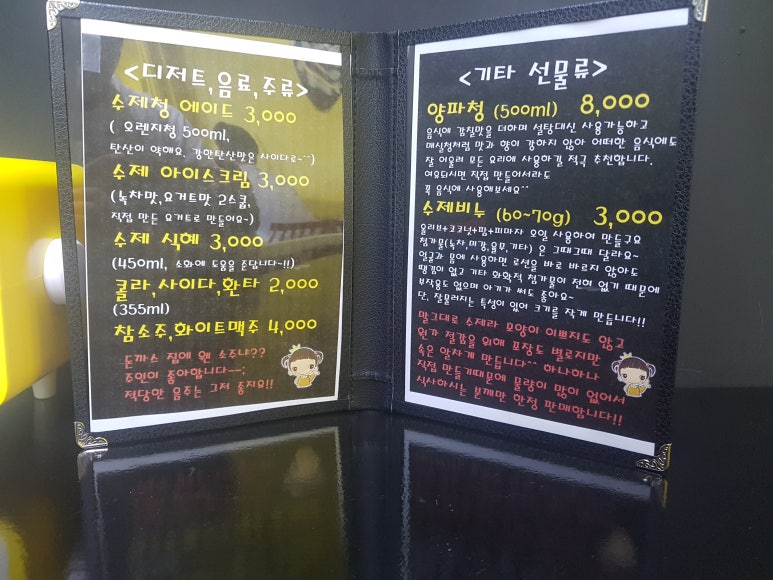 <디저트,음료,주류>
수제청 에이드 3,000
( 오렌지청 500ml,
탄산이 약해요. 강한탄산맛은 사이다로~^^)
수제 아이스크림 3,000
(녹차맛,요거트맛 2스쿱,
직접 만든 요거트로 만들어요~)
수제 식혜 3,000
(450ml, 소화에 도움을 준답니다~!!)
콜라,사이다,환타 2,000
(355ml)
참소주,화이트맥주 4,000
돈까스 집에 웬 소주냐??
주인이 좋아합니다~~;
적당한 음주는 그저 좋지요!!
<기타 선물류>
양파청 (500ml) 8,000
음식에 감칠맛을 더하며 설탕대신 사용가능하고
매실청처럼 맛과 향이 강하지 않아 어떠한 음식에도
잘 어울려 모든 요리에 사용하길 적극 추천합니다.
여유되시면 직접 만들어서라도
꼭 음식에 사용해보세요^^
수제비누 (60~70g) 3,000
올리브+코코넛+팜+피마자 오일 사용하여 만들구요
첨가물(녹차,미강,율무,기타) 은 그때그때 달라요~
얼굴과 몸에 사용하면 로션을 바로 바르지 않아도
땡김이 없고 기타 화학적 첨가물이 전혀 없기 때문에
부작용도 없으며 아기가 써도 좋아요~
단, 잘물러지는 특성이 있어 크기를 작게 만듭니다!!
말그대로 수제라 모양이 이쁘지도 않고
원가 절감을 위해 포장도 별로지만
속은 알차게 만듭니다^^ 하나하나
직접 만들기때문에 물량이 많이 없어서
식사하시는 분께만 한정 판매합니다!!